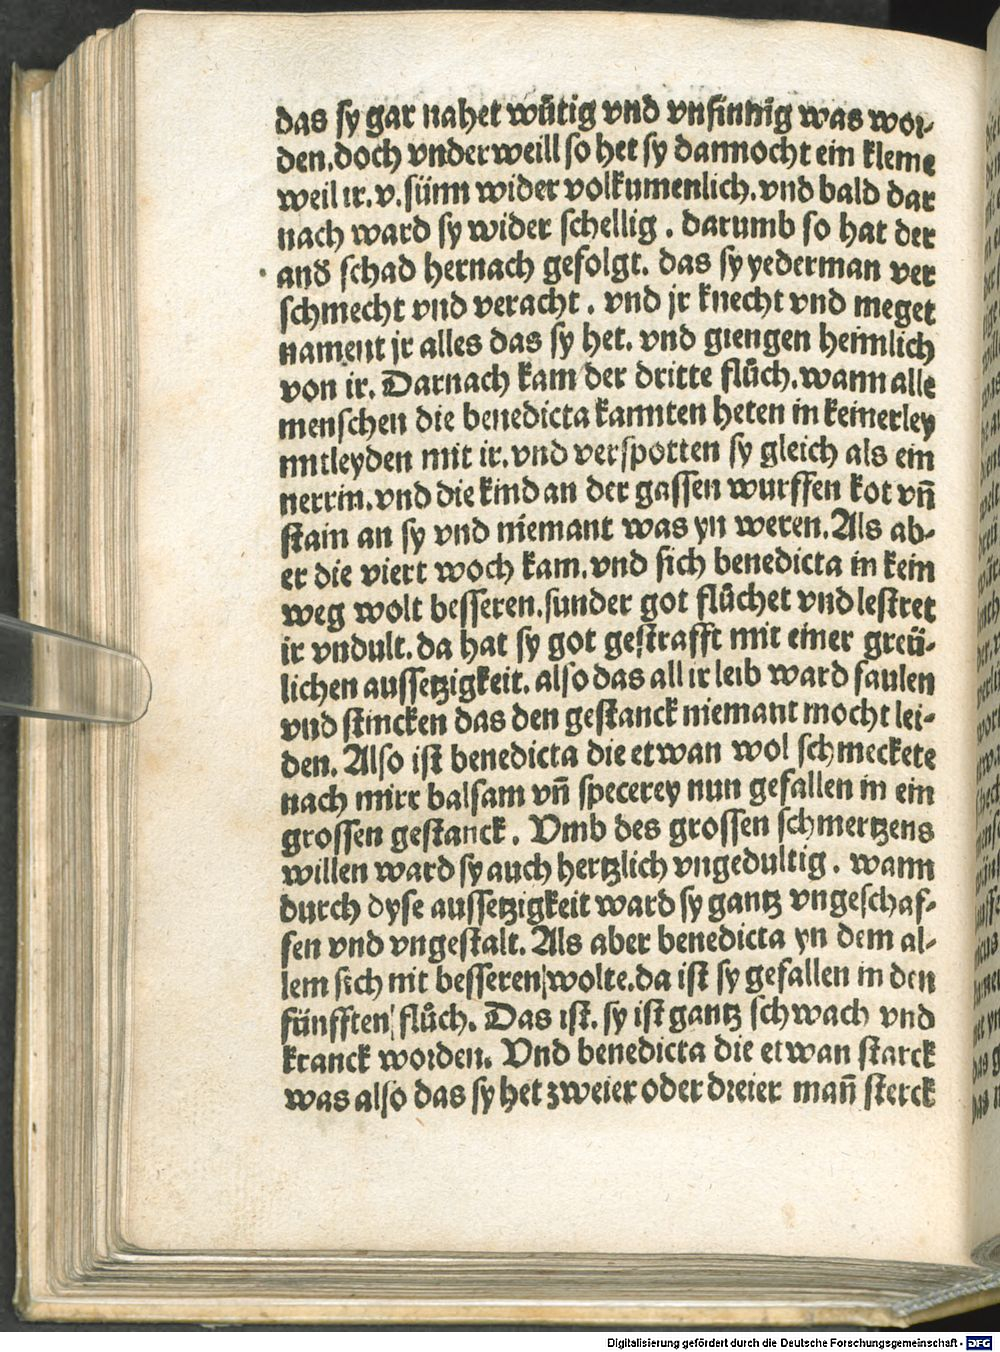 das sy gar nahet wütig vnd vnsinnig was wor-
den. doch vnderweill so het sy dannocht ein kleine
weil ir. v. sünn wider volkumenlich. vnd bald dar
nach ward sy wider schellig. darumb so hat der
and̃ schad hernach gefolgt. das sy yederman ver
schmecht vnd veracht. vnd jr knecht vnd meget
nament jr alles das sy het. vnd giengen heimlich
von ir. Darnach kam der dritte flůch. wann alle
menschen die benedicta kannten heten in keinerley
mitleyden mit ir. vnd verspotten sy gleich als ein
nerrin. vnd die kind an der gassen wurffen kot vñ
stain an sy vnd niemant was yn weren. Als ab-
er die viert woch kam. vnd sich benedicta in kein
weg wolt besseren. sunder got flůchet vnd lestret
ir vndult. da hat sy got gestrafft mit einer greü-
lichen aussetzigkeit. also das all ir leib ward faulen
vnd stincken das den gestanck niemant mocht lei-
den. Also ist benedicta die etwan wol schmeckete
nach mirr balsam vñ specerey nun gefallen in ein
grossen gestanck. Vmb des grossen schmertzens
willen ward sy auch hertzlich vngedultig. wann
durch dyse aussetzigkeit ward sy gantz vngeschaf-
fen vnd vngestalt. Als aber benedicta yn dem al-
lem sich nit besseren wolte. da ist sy gefallen in den
fünfften flůch. Das ist. sy ist gantz schwach vnd
kranck worden. Vnd benedicta die etwan starck
was also das sy het zweier oder dreier mañ sterck
Digitalisierung gefördert durch die Deutsche Forschungsgemeinschaft - DFG